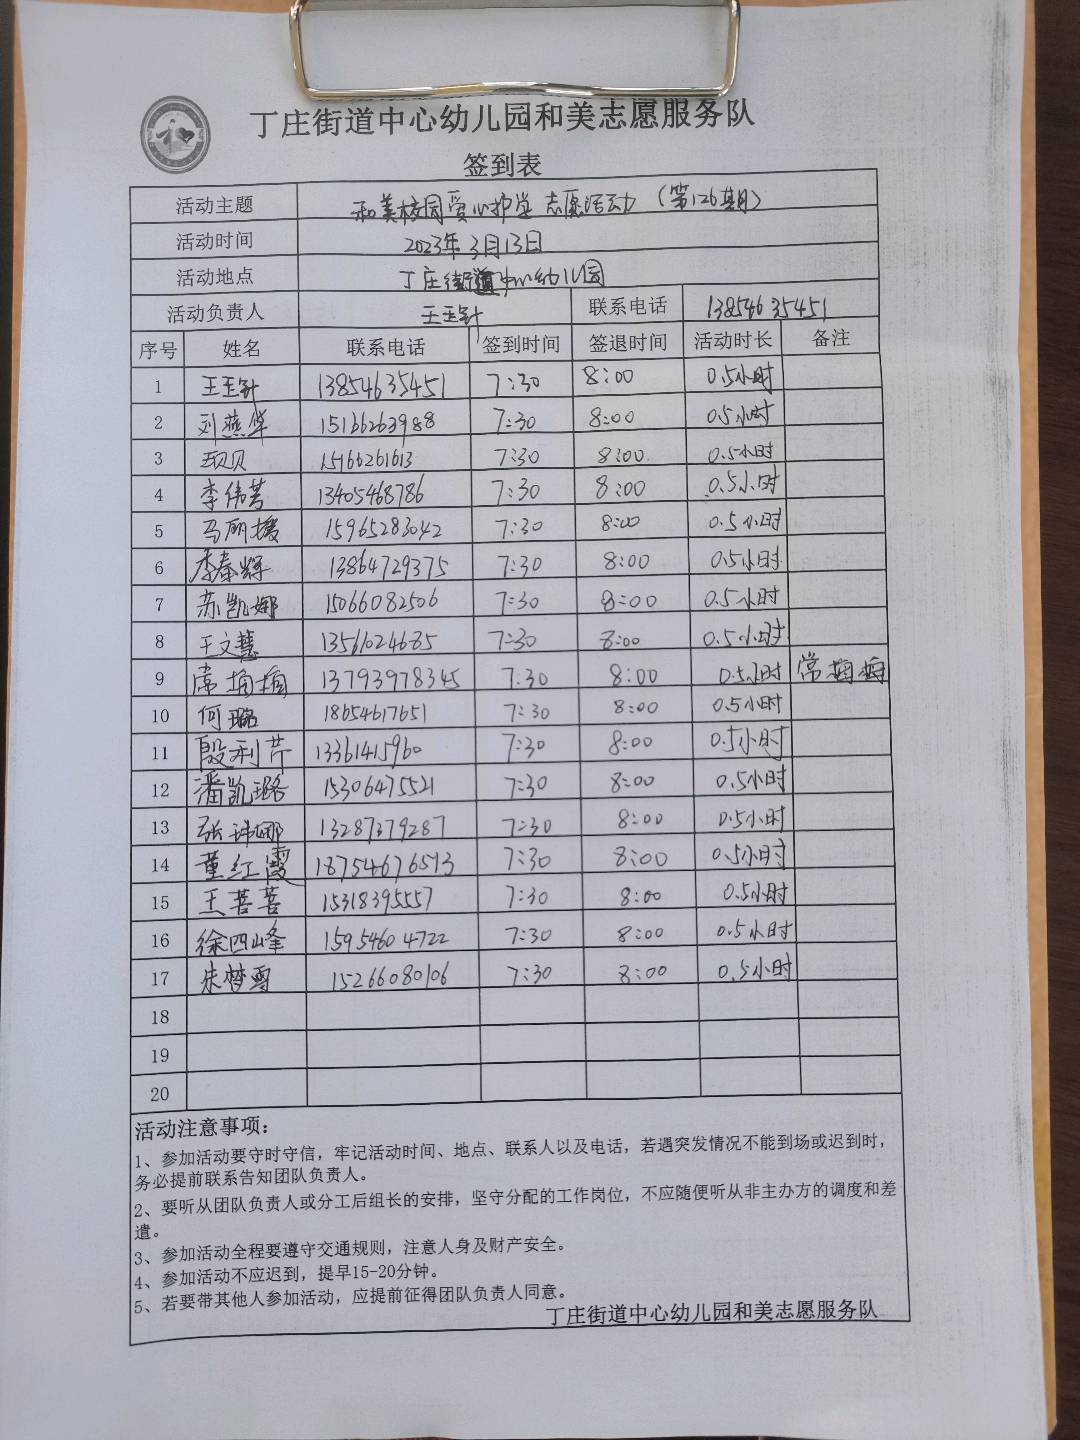 丁庄街道中心幼儿园和美志愿服务队
签到表
活动主题 和美校园爱心护学志愿活动（第126期）
活动时间 2023年3月13日
活动地点 丁庄街道中心幼儿园
活动负责人 王玉针 联系电话 13854635451
序号 姓名 联系电话 签到时间 签退时间 活动时长 备注
1 王玉针 13854635451 7:30 8:00 0.5小时
2 刘燕华 15166263988 7:30 8:00 0.5小时
3 15166261613 7:30 8:00 0.5小时
4 李伟芳 13405468786 7:30 8:00 0.5小时
5 马丽媛 15965283042 7:30 8:00 0.5小时
6 李春辉 13864729375 7:30 8:00 0.5小时
7 苏凯娜 15066082506 7:30 8:00 0.5小时
8 王文慧 7:30 8:00 0.5小时
9 常梅梅 13793978345 7:30 8:00 0.5小时 常梅梅
10 何璐 18654617651 7:30 8:00 0.5小时
11 殷利芹 13361415960 7:30 8:00 0.5小时
12 潘凯璐 15306475521 7:30 8:00 0.5小时
13 张玮娜 13287379287 7:30 8:00 0.5小时
14 董红霞 18754676513 7:30 8:00 0.5小时
15 王菩菩 15318395557 7:30 8:00 0.5小时
16 徐四峰 15954604722 7:30 8:00 0.5小时
17 朱梦雪 15266080106 7:30 8:00 0.5小时
18
19
20
活动注意事项：
1、参加活动要守时守信，牢记活动时间、地点、联系人以及电话，若遇突发情况不能到场或迟到时，
务必提前联系告知团队负责人。
2、要听从团队负责人或分工后组长的安排，坚守分配的工作岗位，不应随便听从非主办方的调度和差
遣。
3、参加活动全程要遵守交通规则，注意人身及财产安全。
4、参加活动不应迟到，提早15-20分钟。
5、若要带其他人参加活动，应提前征得团队负责人同意。
丁庄街道中心幼儿园和美志愿服务队